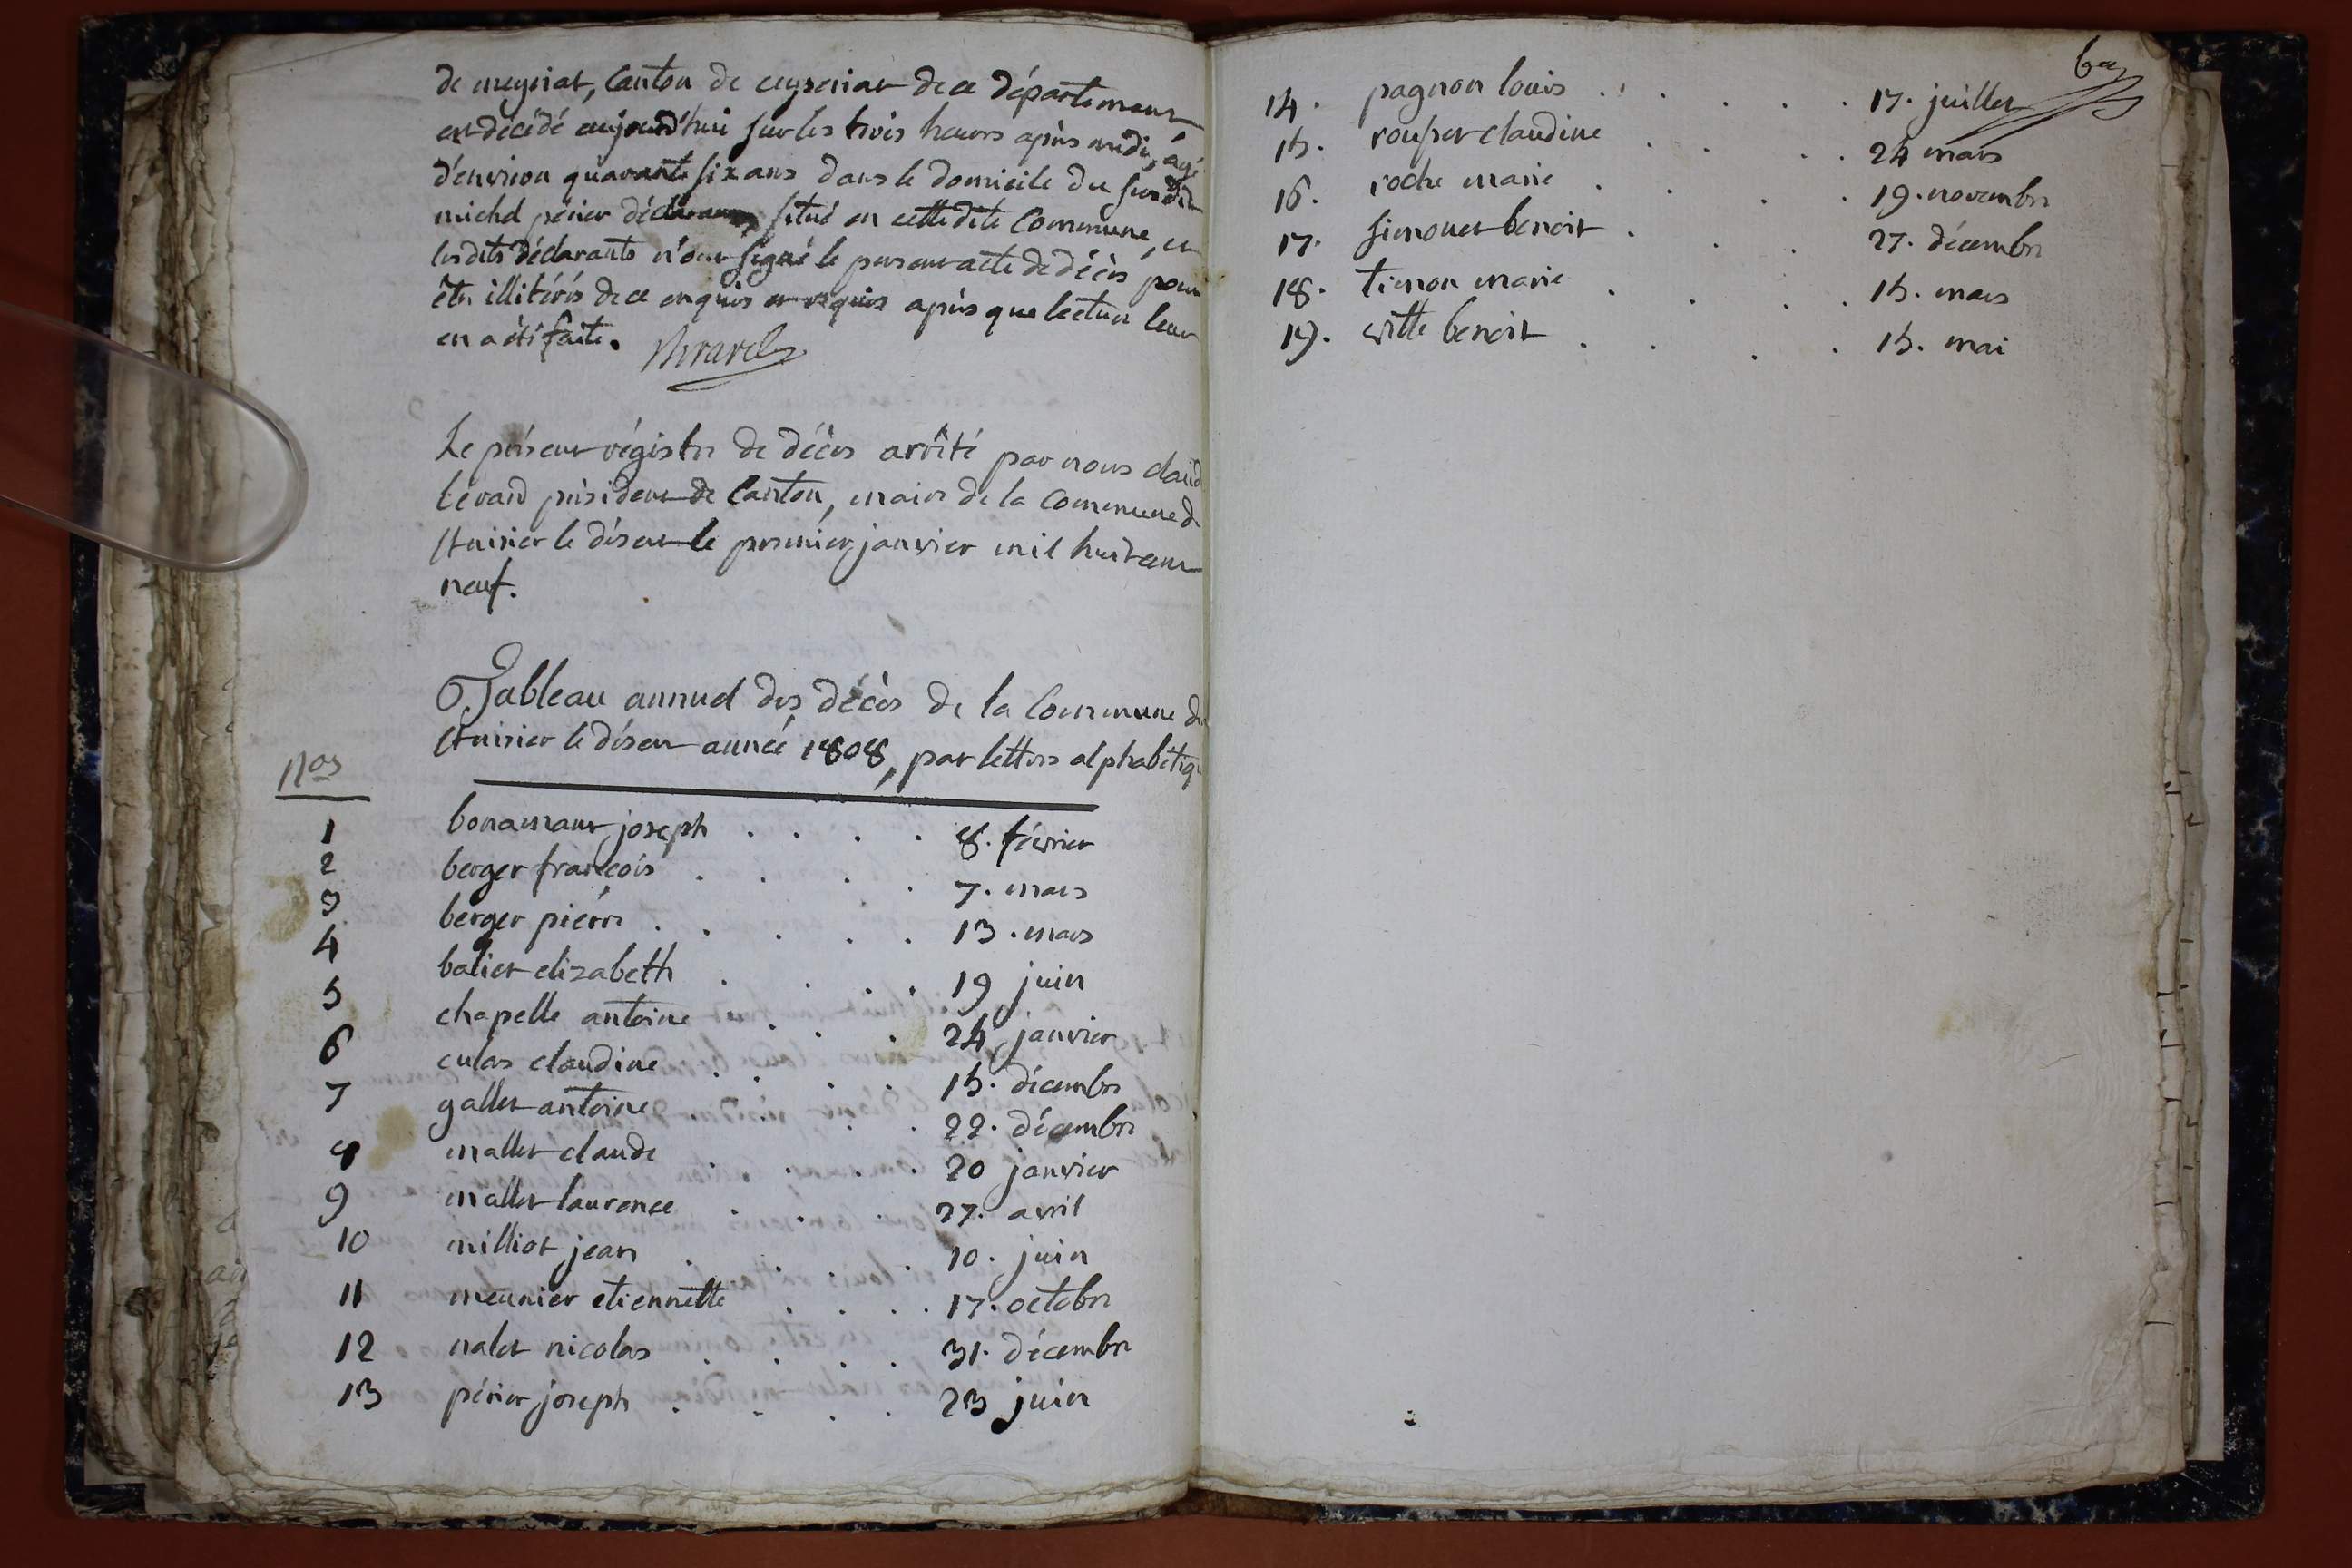 de meyriat, Canton de ceyseriat de ce département,
est décédé aujourd'hui sur les trois heures après midi, âgé
d'environ quarante six ans dans le domicile du susdit
michel périer déclarant, situé en cette dite Commune, et
lesdits déclarants n'ont signé le present acte de décès pour
être illitérés de ce enquis et requis après que lecture leur
en a été faite.
Le présent régistre de décès arrêté par nous claud
bérard président de Canton, maire de la Commune de
St nisier le désert le premier janvier mil huit cent
neuf.
Tableau annuel des décès de la Commune de
St nisier le désert année 1808, par lettres alphabétiqu
nos
1 bonamant joseph . . . . 8. février
2 berger francois . . . . 7. mars
3 berger pierre . . . . . 13. mars
4 baliet elizabeth . . . . 19 juin
5 chapelle antoine . . . 24 janvier
6 culas claudine . . . . 15. décembre
7 gallet antoine . . . . 22. décembre
8 mallet claude . . . . 20 janvier
9 mallet laurence . . . 27. avril
10 milliot jean . . . . 10. juin
11 meunier etiennette . . . . 17. octobre
12 nalet nicolas . . . . 31. décembre
13 périer joseph . . . . 23 juin
14. pagnon louis . . . . . 17. juillet
15. rousset claudine . . . . 24 mars
16. roche marie . . . . 19. novembre
17. simonet benoit . . . 27. décembre
18. timon marie . . . . 15. mars
19. witte benoit . . . . 15. mai